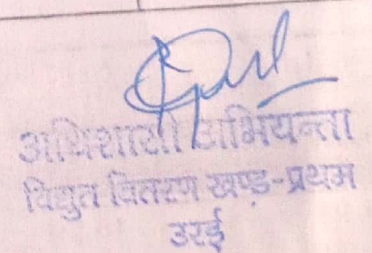 अधिशासी अभियन्ता
विद्युत वितरण खण्ड-प्रथम
उरई